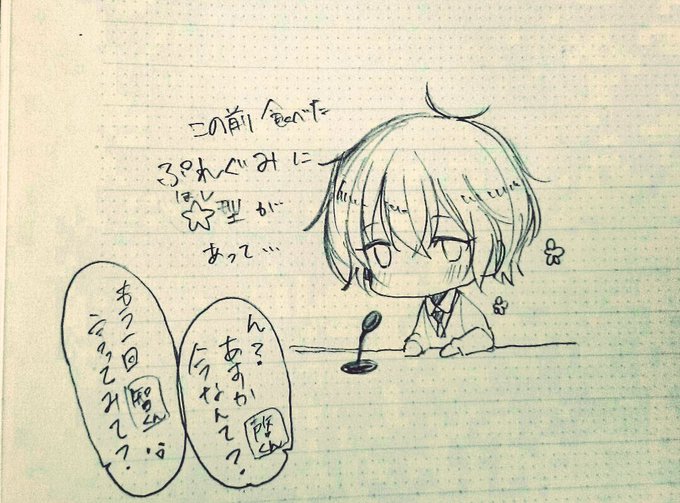 この前食べた
ぷれぐみに
ほし
☆型が
あって…
ん?
あすか
今なんて?
啓くん
もう一回
言ってみて?
智くん